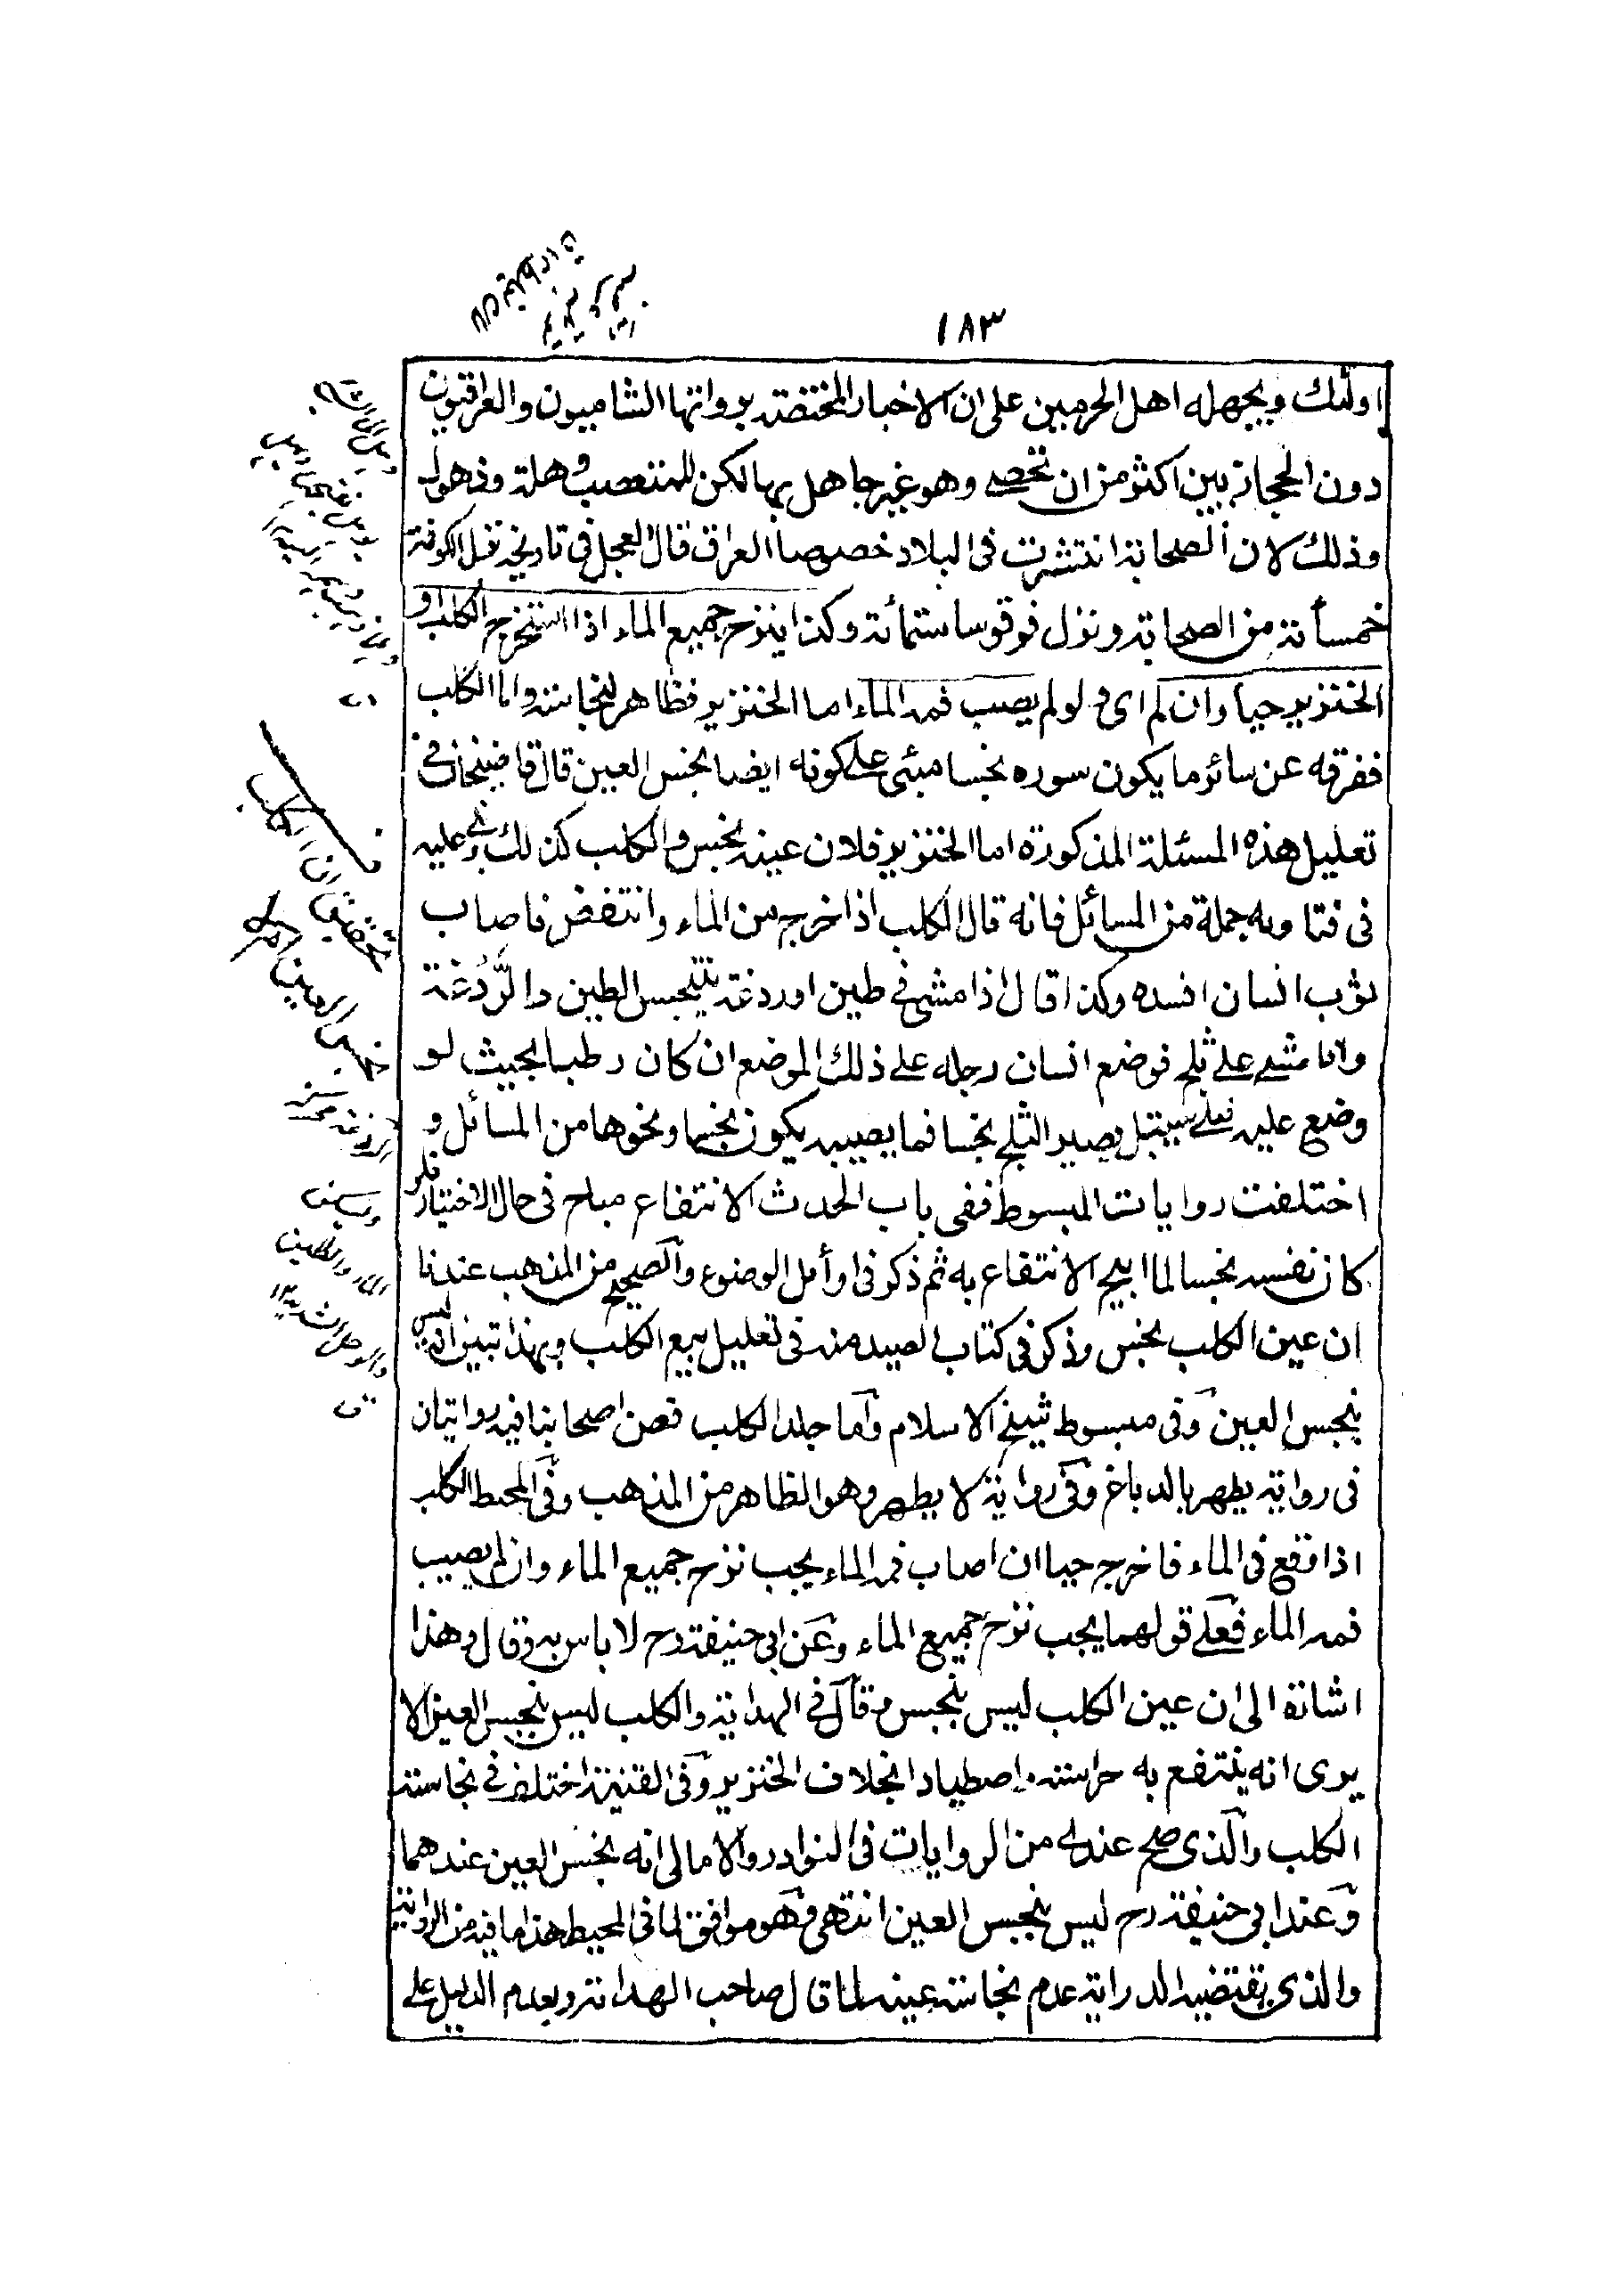 ١٨٣
اولئك ويجهله اهل الحرمين على ان الاخبار المختصة برواتها الشاميون والعراقيون
دون الحجازيين اكثر من ان تحصى وهو غير جاهل بها لكن للمتعصب وهلة وذهول
وذلك لان الصحابة انتشرت فى البلاد خصوصا العراق قال العجلى فى تاريخه نزل الكوفة
خمسمأئة من الصحابة ونزل قرقوسا ستمائة وكذا ينزح جميع الماء اذا استخرج الكلب او
الخنزير حيا وان لم اى ولو لم يصب فمه الماء اما الخنزير فظاهر لنجاسته واما الكلب
ففرقه عن سائر ما يكون سوره نجسا مبنى على كونه ايضا نجس العين قال قاضيخان فى
تعليل هذه المسئلة المذكورة اما الخنزير فلان عينه نجس والكلب كذلك وبنى عليه
فى فتاويه جملة من المسائل فانه قال الكلب اذا خرج من الماء وانتفض فاصاب
ثوب انسان افسده وكذا قال اذا مشى فى طين او ردغة يتنجس الطين والرَّدْغَة
واذا مشى على ثلج فوضع انسان رجله على ذلك الموضع ان كان رطبا بحيث لو
وضع عليه شىء يبتل يصير الثلج نجسا فما يصيبه يكون نجسا ونحوها من المسائل و
اختلفت روايات المبسوط ففى باب الحدث الانتفاع مباح فى حال الاختيار فلو
كان نفسه نجسا لما ابيح الانتفاع به ثم ذكر فى اوائل الوضوء والصحيح من المذهب عندنا
ان عين الكلب نجس وذكر فى كتاب الصيد منه فى تعليل بيع الكلب وبهذا تبين انه ليس
بنجس العين وفى مبسوط شيخ الاسلام واما جلد الكلب فعن اصحابنا فيه روايتان
فى رواية يطهر بالدباغ وفى رواية لا يطهر وهو الظاهر من المذهب وفى المحيط الكلب
اذا وقع فى الماء فاخرج حيا ان اصاب فمه الماء يجب نزح جميع الماء وان لم يصيب
فمه الماء فعلى قولهما يجب نزح جميع الماء وعن ابى حنيفة رح لا باس به وقال وهذا
اشارة الى ان عين الكلب ليس بنجس وقال فى الهداية والكلب ليس بنجس العين الا
يرى انه ينتفع به حراسة واصطيادا بخلاف الخنزير وفى القنية اختلف فى نجاسة
الكلب والذى صح عندى من الروايات فى النوادر والامالى انه نجس العين عندهما
وعند ابى حنيفة رح ليس بنجس العين انتهى وهو موافق لما فى المحيط هذا ما فيه من الرواية
والذى يقتضيه الدراية عدم نجاسة عينه لما قال صاحب الهداية ولعدم الدليل على
تحقيق ان الكلب
نجس العين ام لا